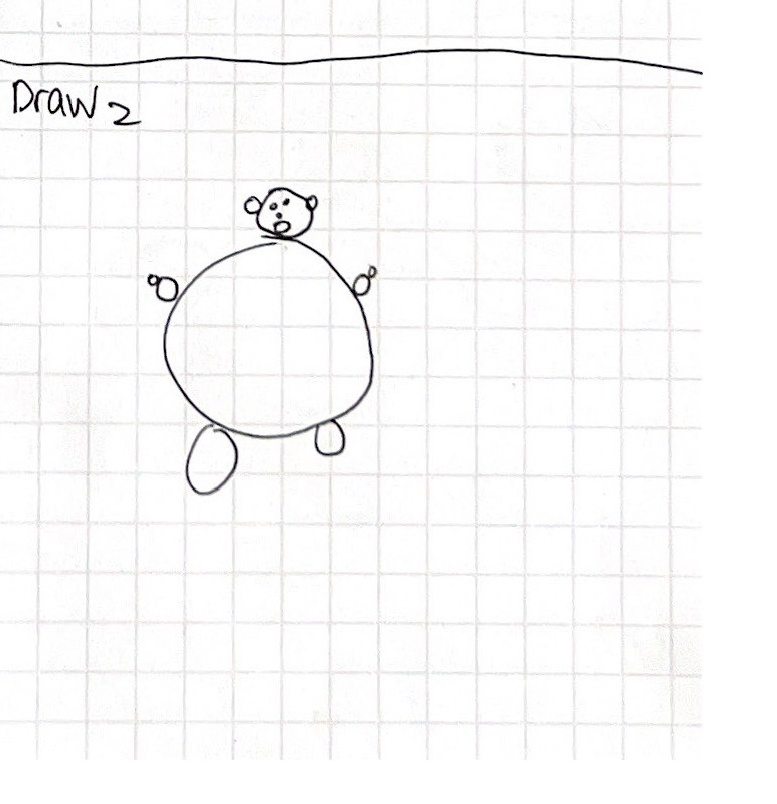 Draw 2